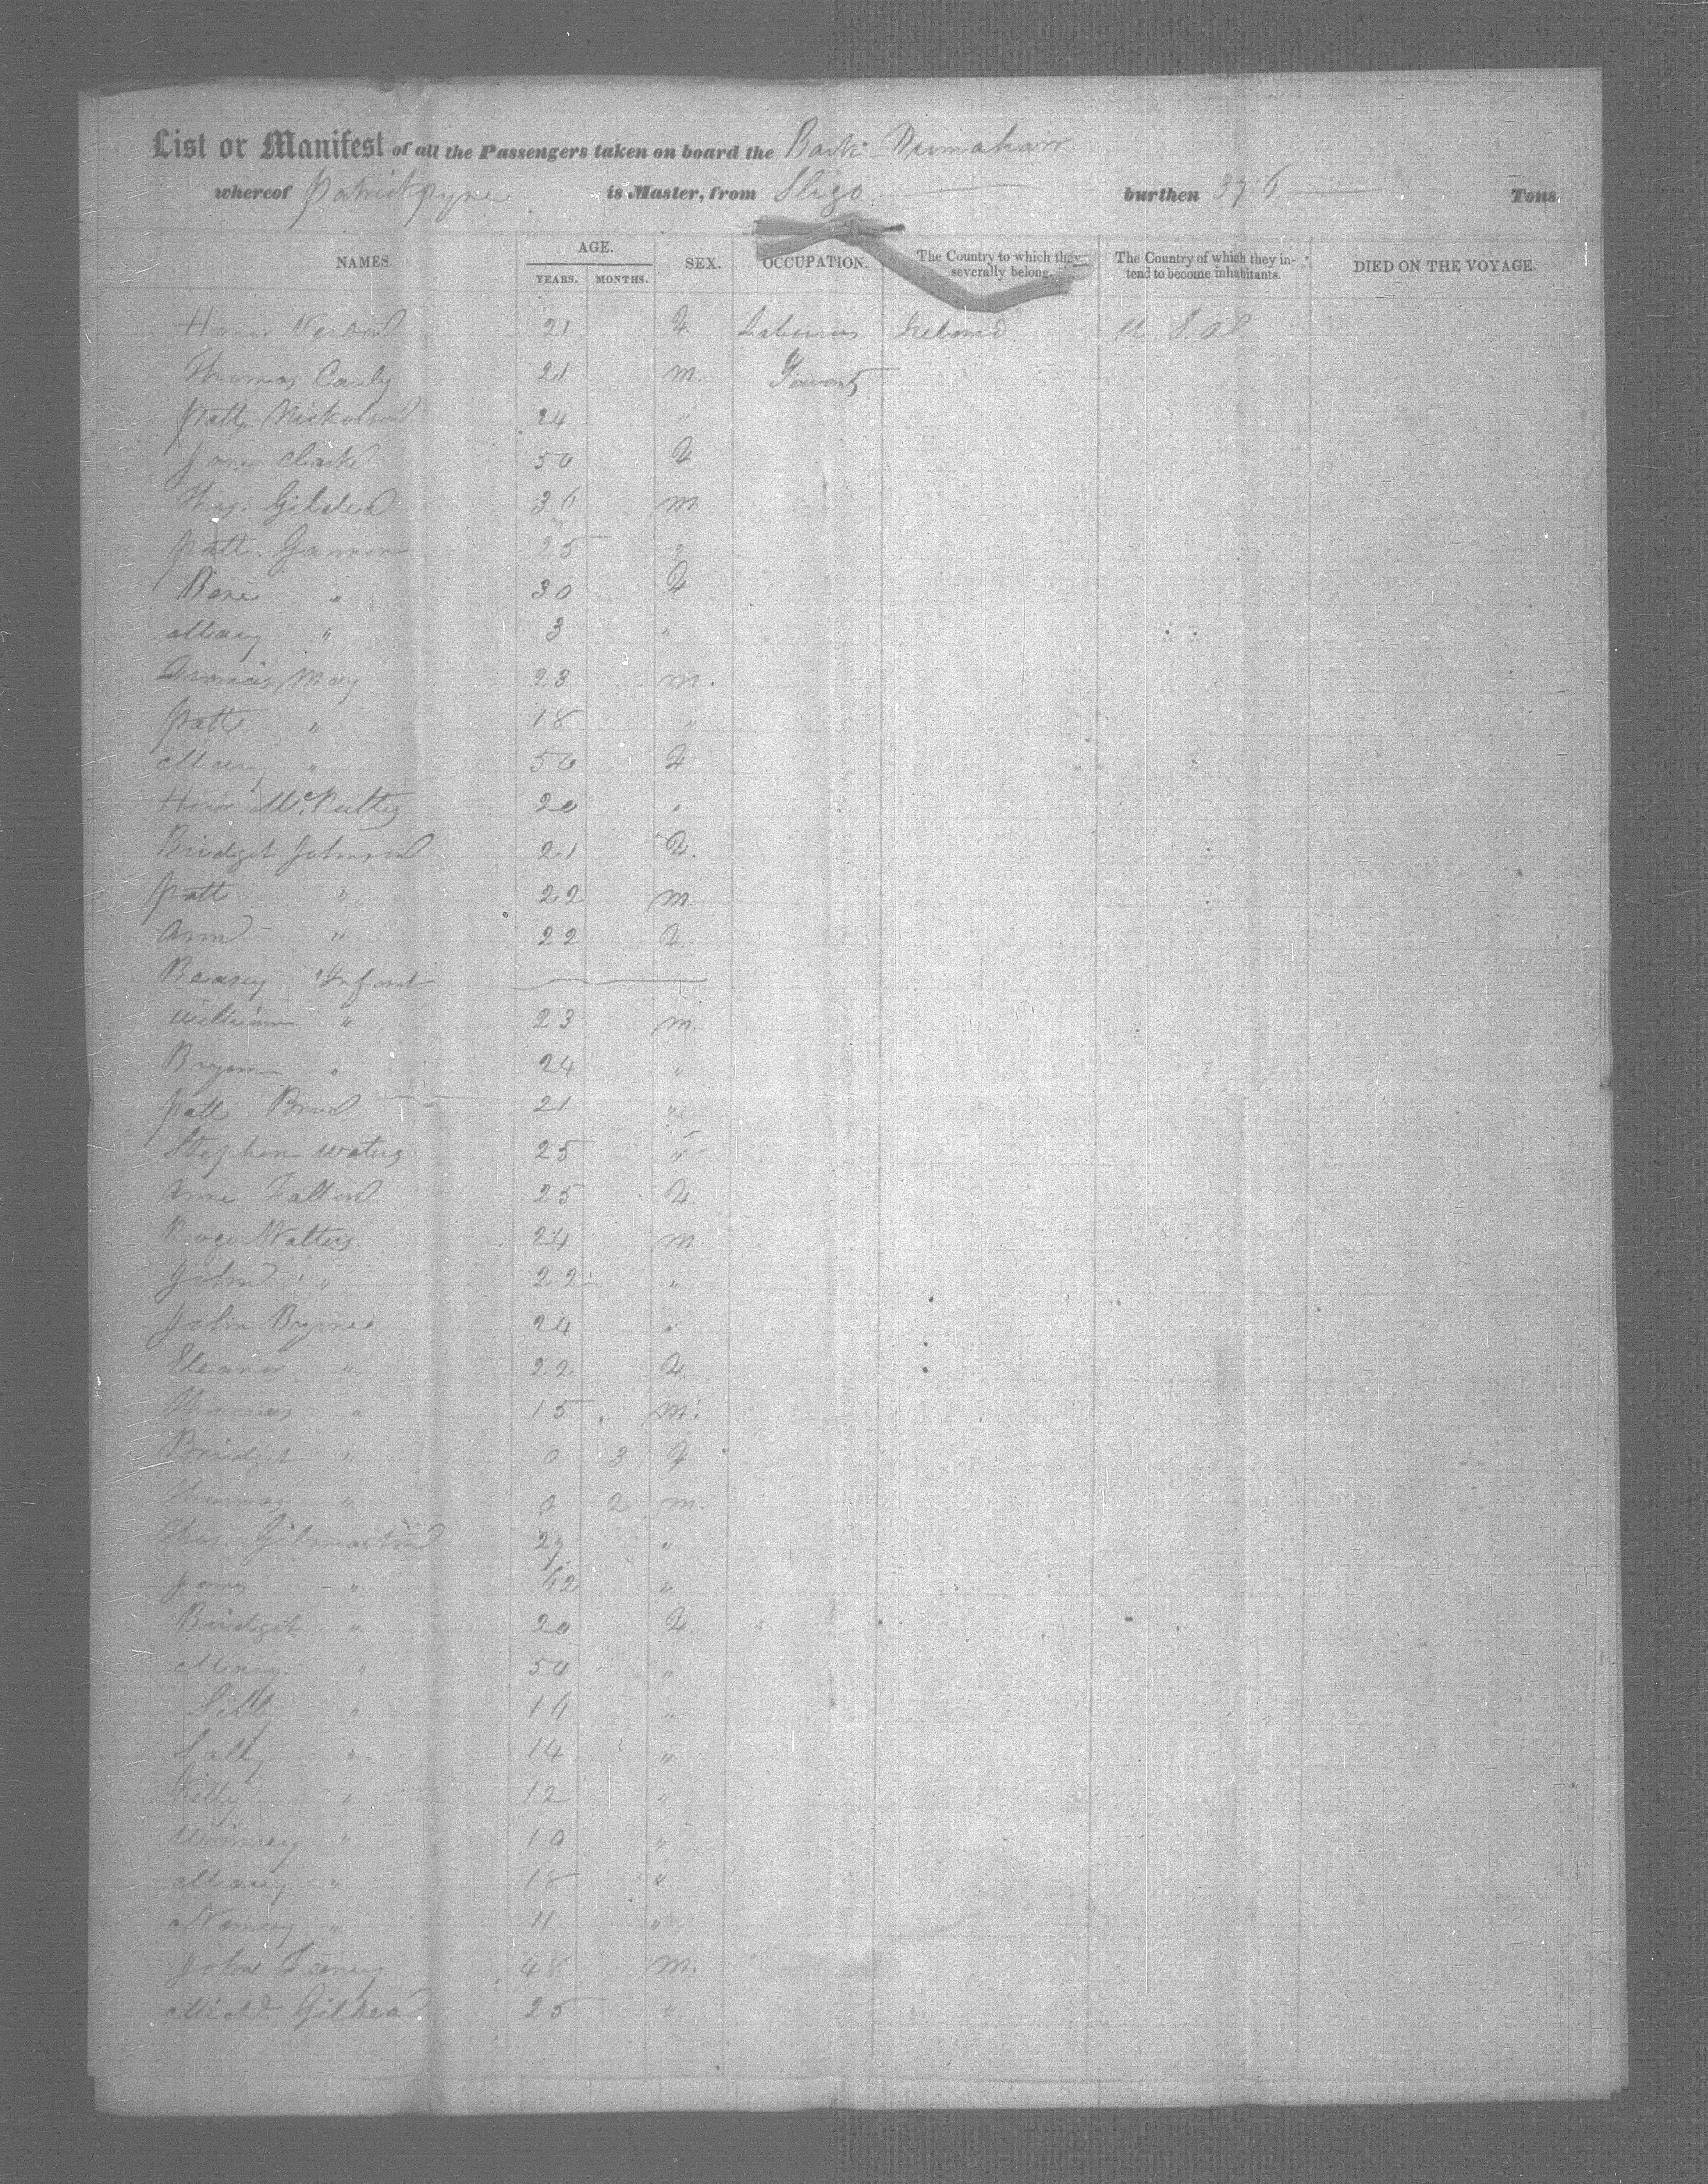 List or Manifest of all the Passengers taken on board the Bark Drumahair
whereof Patrick Pyne is Master, from Sligo burthen 396 Tons
NAMES. AGE. YEARS. MONTHS. SEX. OCCUPATION. The Country to which they severally belong. The Country of which they intend to become inhabitants. DIED ON THE VOYAGE.
Honor 21 F. Labourers Ireland U. S. A.
Thomas Cauly 21 m.
Patt. Nickolson 24 "
Jane Clarke 50 F
Thos. Gildea 36 m
Patt. Gannon 25 "
Rose " 30 F
Mary " 3 "
Francis May 23 m.
Patt " 18 "
Mary " 50 F
Honor 20 "
Bridget Johnson 21 F.
Patt " 22 m.
Ann " 22 F.
Infant
William " 23 m.
Bryan " 24 "
Patt 21 "
Stephen Waters 25 "
Anne Fallon 25 F.
Roger Watters 24 m.
John " 22 "
John Byrnes 24 "
Eleanor " 22 F.
Thomas " 15 m.
Bridget " 0 3 F
Thomas " 0 2 m.
Thos. Gilmartin 27 "
James " 62 "
Bridget " 20 F.
Mary " 50 "
" 16 "
Sally " 14 "
Kitty " 12 "
Winney " 10 "
Mary " 18 "
Nancy " 11 "
John Feeney 48 m.
Michl. Gildea 25 "